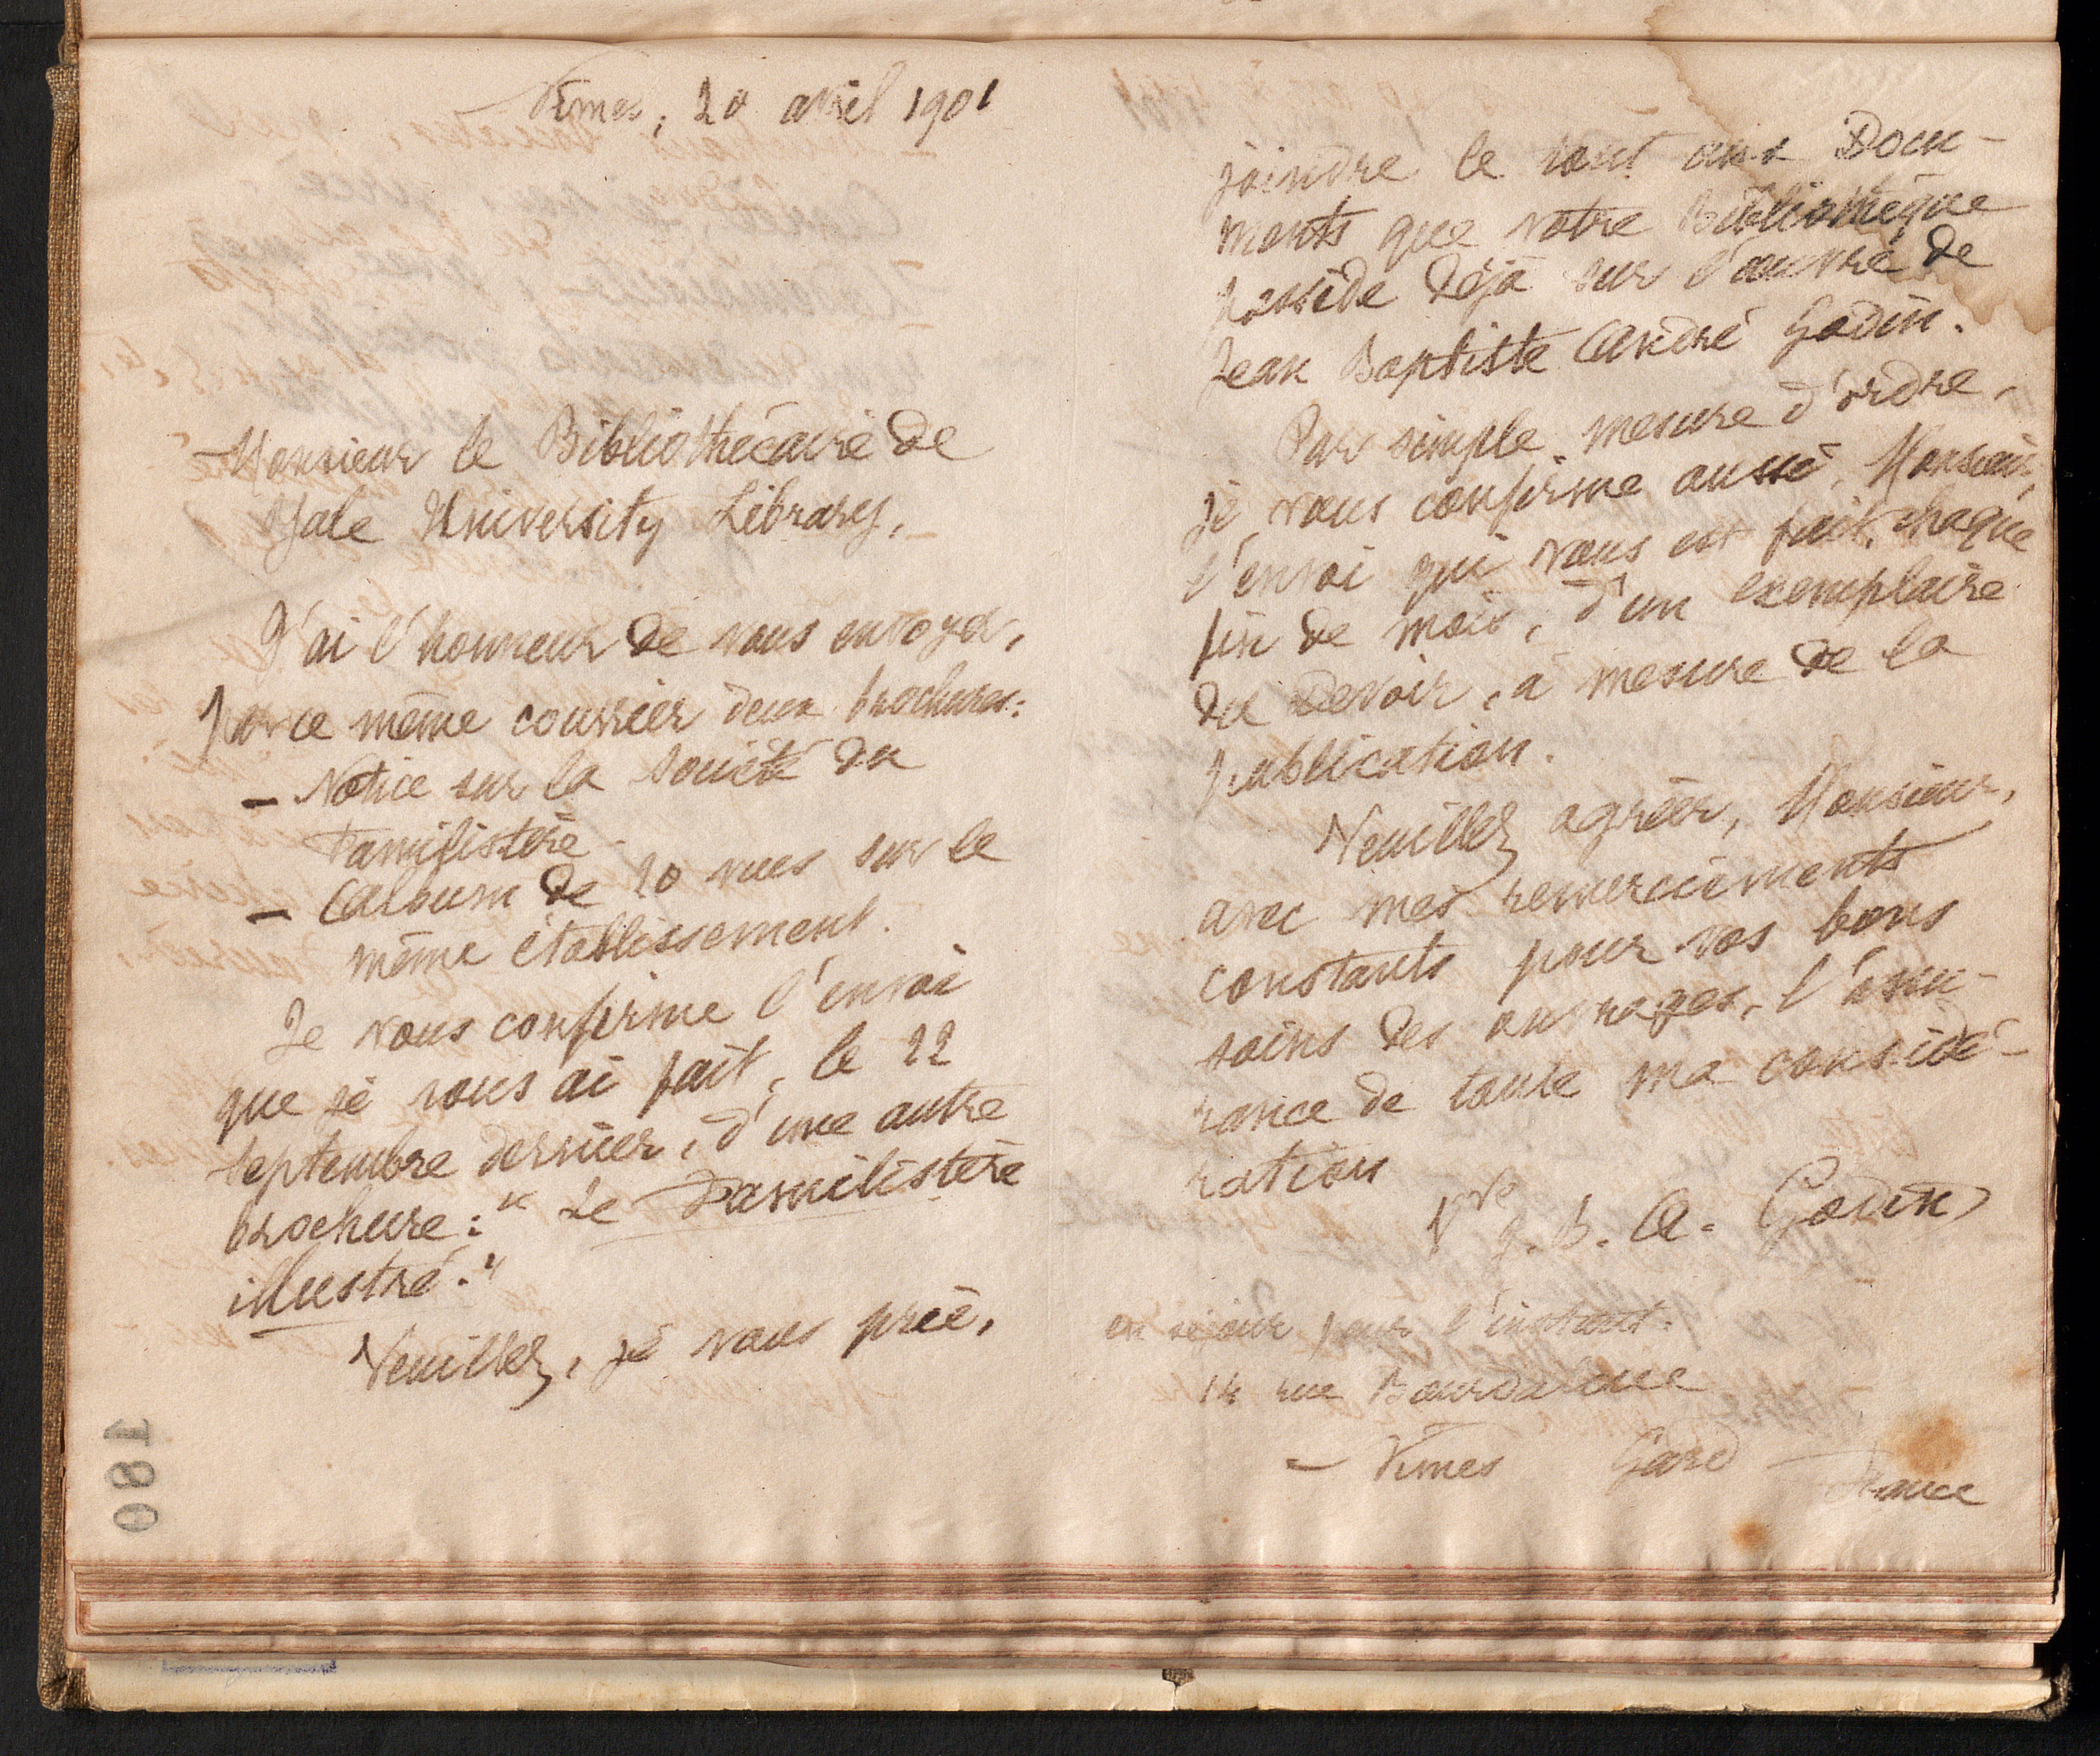 Nîmes, 20 avril 1901
Monsieur le Bibliothécaire de
Yale University Library,
J'ai l'honneur de vous envoyer,
par ce même courrier deux brochures:
- Notice sur la Société du
Familistère
- Album de 20 vues sur le
même établissement.
Je vous confirme l'envoi
que je vous ai fait, le 22
septembre dernier, d'une autre
brochure: "Le Familistère
illustré."
Veuillez, je vous prie,
joindre le tout aux Docu-
ments que votre Bibliothèque
possède déjà sur l'œuvre de
Jean Baptiste André Godin.
Par simple mesure d'ordre,
je vous confirme aussi, Monsieur,
l'envoi qui vous est fait, chaque
fin de mois, d'un exemplaire
du Devoir, à mesure de la
publication.
Veuillez agréer, Monsieur,
avec mes remerciements
constants pour vos bons
soins des ouvrages, l'assu-
rance de toute ma considé-
ration
Vve J. B. A. Godin
en séjour pour l'instant.
14 rue Bourdaloue
- Nîmes Gard -
France
180